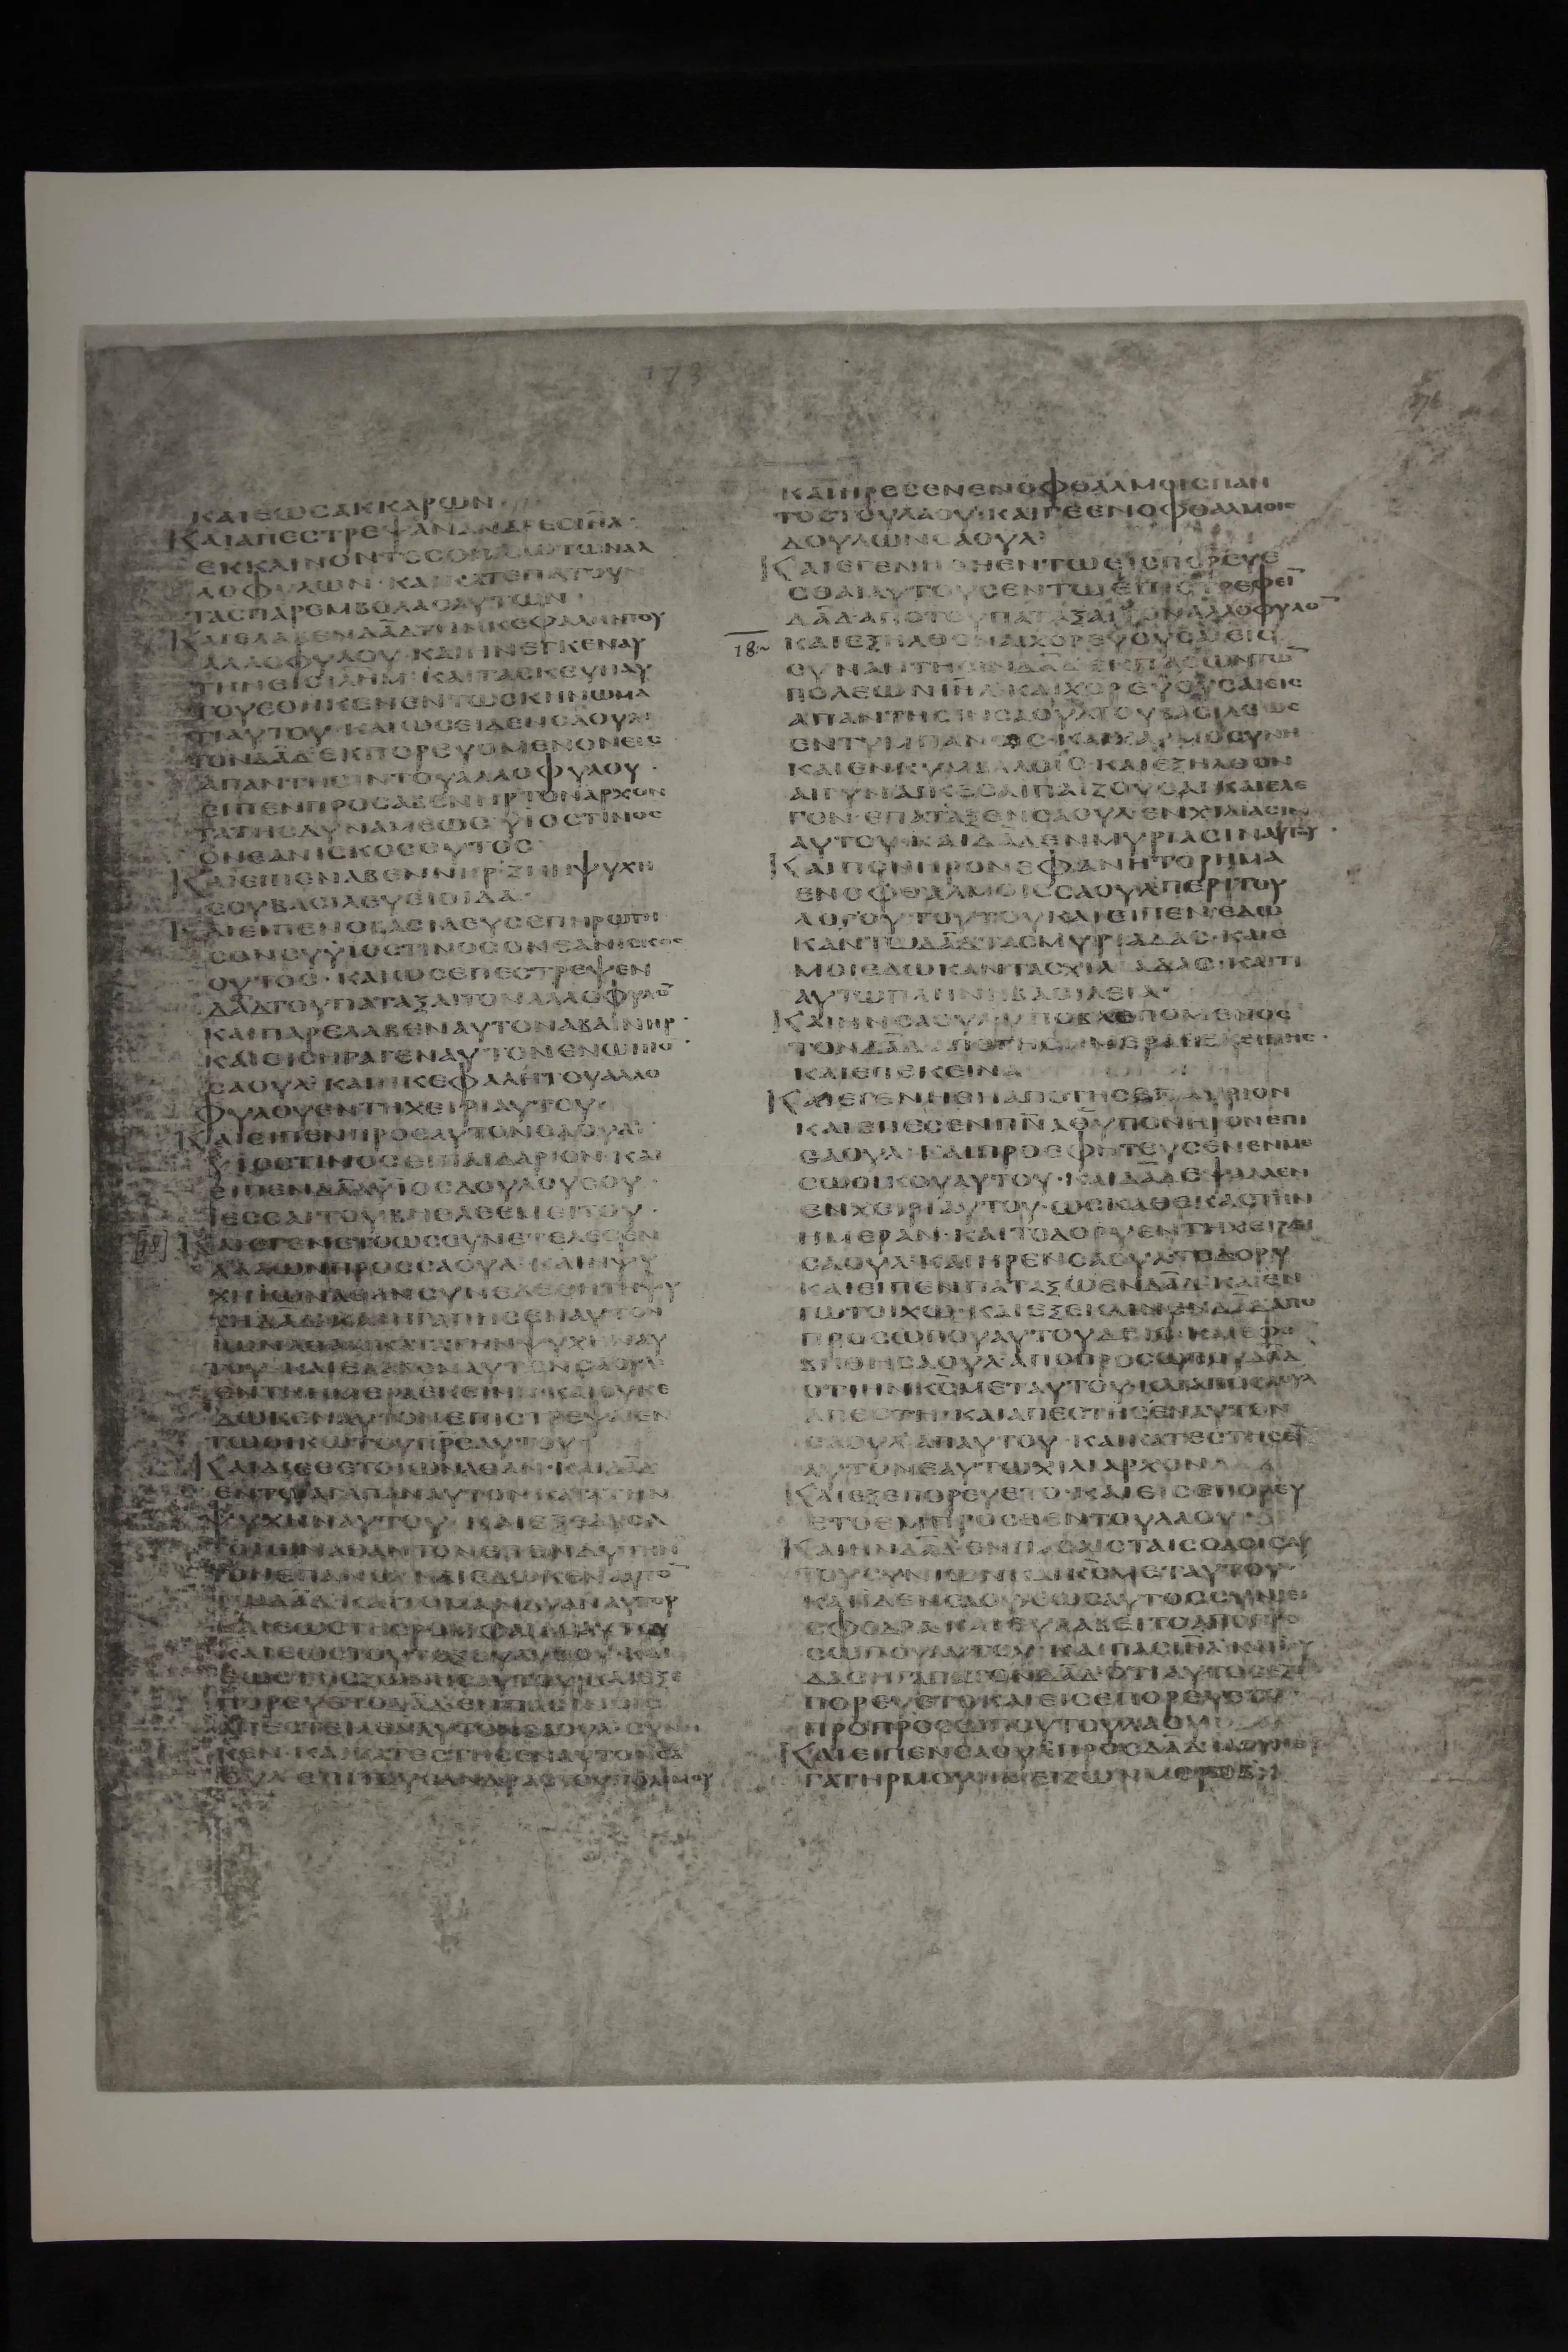 173
ΚΑΙΕΩΣΑΚΚΑΡΩΝ·
ΚΑΙΑΠΕΣΤΡΕΨΑΝΑΝΔΡΕΣΙΗΛ·
ΕΚΚΛΙΝΟΝΤΕΣΟΠΙΣΩΤΩΝΑΛ
ΛΟΦΥΛΩΝ·ΚΑΙΚΑΤΕΠΑΤΟΥΝ
ΤΑΣΠΑΡΕΜΒΟΛΑΣΑΥΤΩΝ·
ΚΑΙΕΛΑΒΕΝΔΑΔΤΗΝΚΕΦΑΛΗΝΤΟΥ
ΑΛΛΟΦΥΛΟΥ·ΚΑΙΗΝΕΓΚΕΝΑΥ
ΤΗΝΕΙΣΙΛΗΜ·ΚΑΙΤΑΣΚΕΥΗΑΥ
ΤΟΥΕΘΗΚΕΝΕΝΤΩΣΚΗΝΩΜΑ
ΤΙΑΥΤΟΥ·ΚΑΙΩΣΕΙΔΕΝΣΑΟΥΛ·
ΤΟΝΔΑΔ·ΕΚΠΟΡΕΥΟΜΕΝΟΝΕΙΣ
ΑΠΑΝΤΗΣΙΝΤΟΥΑΛΛΟΦΥΛΟΥ·
ΕΙΠΕΝΠΡΟΣΑΒΕΝΗΡΤΟΝΑΡΧΟΝ
ΤΑΤΗΣΔΥΝΑΜΕΩΣ·ΥΙΟΣΤΙΝΟΣ
ΟΝΕΑΝΙΣΚΟΣΟΥΤΟΣ·
ΚΑΙΕΙΠΕΝΑΒΕΝΝΗΡ·ΖΗΗΨΥΧΗ
ΣΟΥΒΑΣΙΛΕΥΕΙΟΙΔΑ·
ΚΑΙΕΙΠΕΝΟΒΑΣΙΛΕΥΣΕΠΕΡΩΤΗ
ΣΟΝΣΥΥΙΟΣΤΙΝΟΣΟΝΕΑΝΙΣΚΟΣ
ΟΥΤΟΣ·ΚΑΙΩΣΕΠΕΣΤΡΕΨΕΝ
ΔΑΔΤΟΥΠΑΤΑΞΑΙΤΟΝΑΛΛΟΦΥΛΟ
ΚΑΙΠΑΡΕΛΑΒΕΝΑΥΤΟΝΑΒΑΙΝΗΡ·
ΚΑΙΕΙΣΗΓΑΓΕΝΑΥΤΟΝΕΝΩΠΙΟ·
ΣΑΟΥΛ·ΚΑΙΗΚΕΦΑΛΗΤΟΥΑΛΛΟ
ΦΥΛΟΥΕΝΤΗΧΕΙΡΙΑΥΤΟΥ·
ΚΑΙΕΙΠΕΝΠΡΟΣΑΥΤΟΝΟΣΑΟΥΛ·
ΥΙΟΣΤΙΝΟΣΕΙΠΑΙΔΑΡΙΟΝ·ΚΑΙ
ΕΙΠΕΝΔΑΔΥΙΟΣΔΟΥΛΟΥΣΟΥ·
ΙΕΣΣΑΙΤΟΥΒΗΘΛΕΕΜΕΙΤΟΥ·
ΚΑΙΕΓΕΝΕΤΟΩΣΣΥΝΕΤΕΛΕΣΕΝ
ΛΑΛΩΝΠΡΟΣΣΑΟΥΛ·ΚΑΙΗΨΥ
ΧΗΙΩΝΑΘΑΝΣΥΝΕΔΕΘΗΤΗΨΥ
ΤΗΔΑΔ·ΚΑΙΗΓΑΠΗΣΕΝΑΥΤΟΝ
ΙΩΝΑΘΑΝΚΑΤΑΤΗΝΨΥΧΗΝΑΥ
ΤΟΥ·ΚΑΙΕΛΑΒΕΝΑΥΤΟΝΣΑΟΥΛ·
ΕΝΤΗΗΜΕΡΑΕΚΕΙΝΗ·ΚΑΙΟΥΚΕ
ΔΩΚΕΝΑΥΤΟΝΕΠΙΣΤΡΕΨΑΙΕΝ
ΤΩΟΙΚΩΤΟΥΠΡΣΑΥΤΟΥ·
ΚΑΙΔΙΕΘΕΤΟΙΩΝΑΘΑΝ·ΚΑΙΔΑΔ
ΕΝΤΩΑΓΑΠΑΝΑΥΤΟΝΚΑΤΑΤΗΝ
ΨΥΧΗΝΑΥΤΟΥ·ΚΑΙΕΞΕΔΥΣΑ
ΤΟΙΩΝΑΘΑΝΤΟΝΕΠΕΝΔΥΤΗΝ
ΤΟΝΕΠΑΝΩ·ΚΑΙΕΔΩΚΕΝΑΥΤΟ
ΤΩΔΑΔ·ΚΑΙΤΟΝΜΑΝΔΥΑΝΑΥΤΟΥ
ΚΑΙΕΩΣΤΗΣΡΟΜΦΑΙΑΣΑΥΤΟΥ
ΚΑΙΕΩΣΤΟΥΤΟΞΟΥΑΥΤΟΥ·ΚΑΙ
ΕΩΣΤΗΣΖΩΝΗΣΑΥΤΟΥ·ΚΑΙΕΞΕ
ΠΟΡΕΥΕΤΟΔΑΔ·ΕΝΠΑΣΙΝΟΙΣ
ΑΠΕΣΤΕΙΛΕΝΑΥΤΟΝΣΑΟΥΛ·ΣΥΝΗ
ΚΕΝ·ΚΑΙΚΑΤΕΣΤΗΣΕΝΑΥΤΟΝΣΑ
ΟΥΛ·ΕΠΙΤΟΥΣΑΝΔΡΑΣΤΟΥΠΟΛΕΜΟΥ
ΚΑΙΗΡΕΣΕΝΕΝΟΦΘΑΛΜΟΙΣΠΑΝ
ΤΟΣΤΟΥΛΑΟΥ·ΚΑΙΓΕΕΝΟΦΘΑΛΜΟΙΣ
ΔΟΥΛΩΝΣΑΟΥΛ·
ΚΑΙΕΓΕΝΗΘΗΕΝΤΩΕΙΣΠΟΡΕΥΕ
ΣΘΑΙΑΥΤΟΥΣΕΝΤΩΕΠΙΣΤΡΕΦΕΙ
ΔΑΔ·ΑΠΟΤΟΥΠΑΤΑΞΑΙΤΟΝΑΛΛΟΦΥΛΟ
18 ΚΑΙΕΞΗΛΘΟΝΑΙΧΟΡΕΥΟΥΣΑΙΕΙΣ
ΣΥΝΑΝΤΗΣΙΝΔΑΔ·ΕΚΠΑΣΩΝΤΩ
ΠΟΛΕΩΝΙΗΛ·ΚΑΙΧΟΡΕΥΟΥΣΑΙΕΙΣ
ΑΠΑΝΤΗΣΙΝΣΑΟΥΛΤΟΥΒΑΣΙΛΕΩΣ
ΕΝΤΥΜΠΑΝΟΙΣ·ΚΑΙΧΑΡΜΟΣΥΝΗ
ΚΑΙΕΝΚΥΜΒΑΛΟΙΣ·ΚΑΙΕΞΗΛΘΟΝ
ΑΙΓΥΝΑΙΚΕΣΑΙΠΑΙΖΟΥΣΑΙ·ΚΑΙΕΛΕ
ΓΟΝ·ΕΠΑΤΑΞΕΝΣΑΟΥΛ·ΕΝΧΙΛΙΑΣΙΝ
ΑΥΤΟΥ·ΚΑΙΔΑΔΕΝΜΥΡΙΑΣΙΝΑΥΤΟΥ·
ΚΑΙΠΟΝΗΡΟΝΕΦΑΝΗΤΟΡΗΜΑ
ΕΝΟΦΘΑΛΜΟΙΣΣΑΟΥΛΠΕΡΙΤΟΥ
ΛΟΓΟΥ·ΤΟΥΤΟΥΚΑΙΕΙΠΕΝ·ΕΔΩ
ΚΑΝΤΩΔΑΔΤΑΣΜΥΡΙΑΔΑΣ·ΚΑΙΕ
ΜΟΙΕΔΩΚΑΝΤΑΣΧΙΛΙΑΔΑΣ·ΚΑΙΤΙ
ΑΥΤΩΠΛΗΝΗΒΑΣΙΛΕΙΑ·
ΚΑΙΗΝΣΑΟΥΛΥΠΟΒΛΕΠΟΜΕΝΟΣ
ΤΟΝΔΑΔ·ΑΠΟΤΗΣΗΜΕΡΑΣΕΚΕΙΝΗΣ·
ΚΑΙΕΠΕΚΕΙΝΑ
ΚΑΙΕΓΕΝΗΘΗΑΠΟΤΗΣΕΠΑΥΡΙΟΝ
ΚΑΙΕΠΕΣΕΝΠΝΑΘΥΠΟΝΗΡΟΝΕΠΙ
ΣΑΟΥΛ·ΚΑΙΠΡΟΕΦΗΤΕΥΣΕΝΕΝΜΕ
ΣΩΟΙΚΟΥΑΥΤΟΥ·ΚΑΙΔΑΔΕΨΑΛΛΕΝ
ΕΝΧΕΙΡΙΑΥΤΟΥ·ΩΣΚΑΘΕΚΑΣΤΗΝ
ΗΜΕΡΑΝ·ΚΑΙΤΟΔΟΡΥΕΝΤΗΧΕΙΡΙ
ΣΑΟΥΛ·ΚΑΙΗΡΕΝΣΑΟΥΛΤΟΔΟΡΥ
ΚΑΙΕΙΠΕΝΠΑΤΑΞΩΕΝΔΑΔ·ΚΑΙΕΝ
ΤΩΤΟΙΧΩ·ΚΑΙΕΞΕΚΛΙΝΕΝΔΑΔΑΠΟ
ΠΡΟΣΩΠΟΥΑΥΤΟΥΔΕΙΣ·ΚΑΙΕΦΟ
ΒΗΘΗΣΑΟΥΛ·ΑΠΟΠΡΟΣΩΠΟΥΔΑΔ
ΟΤΙΗΝΚΣΜΕΤΑΥΤΟΥ·ΚΑΙΑΠΟΣΑΟΥΛ
ΑΠΕΣΤΗ·ΚΑΙΑΠΕΣΤΗΣΕΝΑΥΤΟΝ
ΣΑΟΥΛ·ΑΠΑΥΤΟΥ·ΚΑΙΚΑΤΕΣΤΗΣΕ
ΑΥΤΟΝΕΑΥΤΩΧΙΛΙΑΡΧΟΝ
ΚΑΙΕΞΕΠΟΡΕΥΕΤΟ·ΚΑΙΕΙΣΕΠΟΡΕΥ
ΕΤΟΕΜΠΡΟΣΘΕΝΤΟΥΛΑΟΥ·
ΚΑΙΗΝΔΑΔ·ΕΝΠΑΣΑΙΣΤΑΙΣΟΔΟΙΣΑΥ
ΤΟΥΣΥΝΙΩΝ·ΚΑΙΚΣΜΕΤΑΥΤΟΥ·
ΚΑΙΙΔΕΝΣΑΟΥΛΩΣΑΥΤΟΣΣΥΝΙΕΙ
ΣΦΟΔΡΑ·ΚΑΙΕΥΛΑΒΕΙΤΟΑΠΟΠΡΟ
ΣΩΠΟΥΑΥΤΟΥ·ΚΑΙΠΑΣΙΗΛ·ΚΑΙΙΟΥ
ΔΑΣΗΓΑΠΑΤΟΝΔΑΔ·ΟΤΙΑΥΤΟΣΕΞΕ
ΠΟΡΕΥΕΤΟΚΑΙΕΙΣΕΠΟΡΕΥΕΤΟ·
ΠΡΟΠΡΟΣΩΠΟΥΤΟΥΛΑΟΥ
ΚΑΙΕΙΠΕΝΣΑΟΥΛΠΡΟΣΔΑΔ·ΙΔΟΥΗΘΥ
ΓΑΤΗΡΜΟΥΗΜΕΙΖΩΝΜΕΡΟΒ·